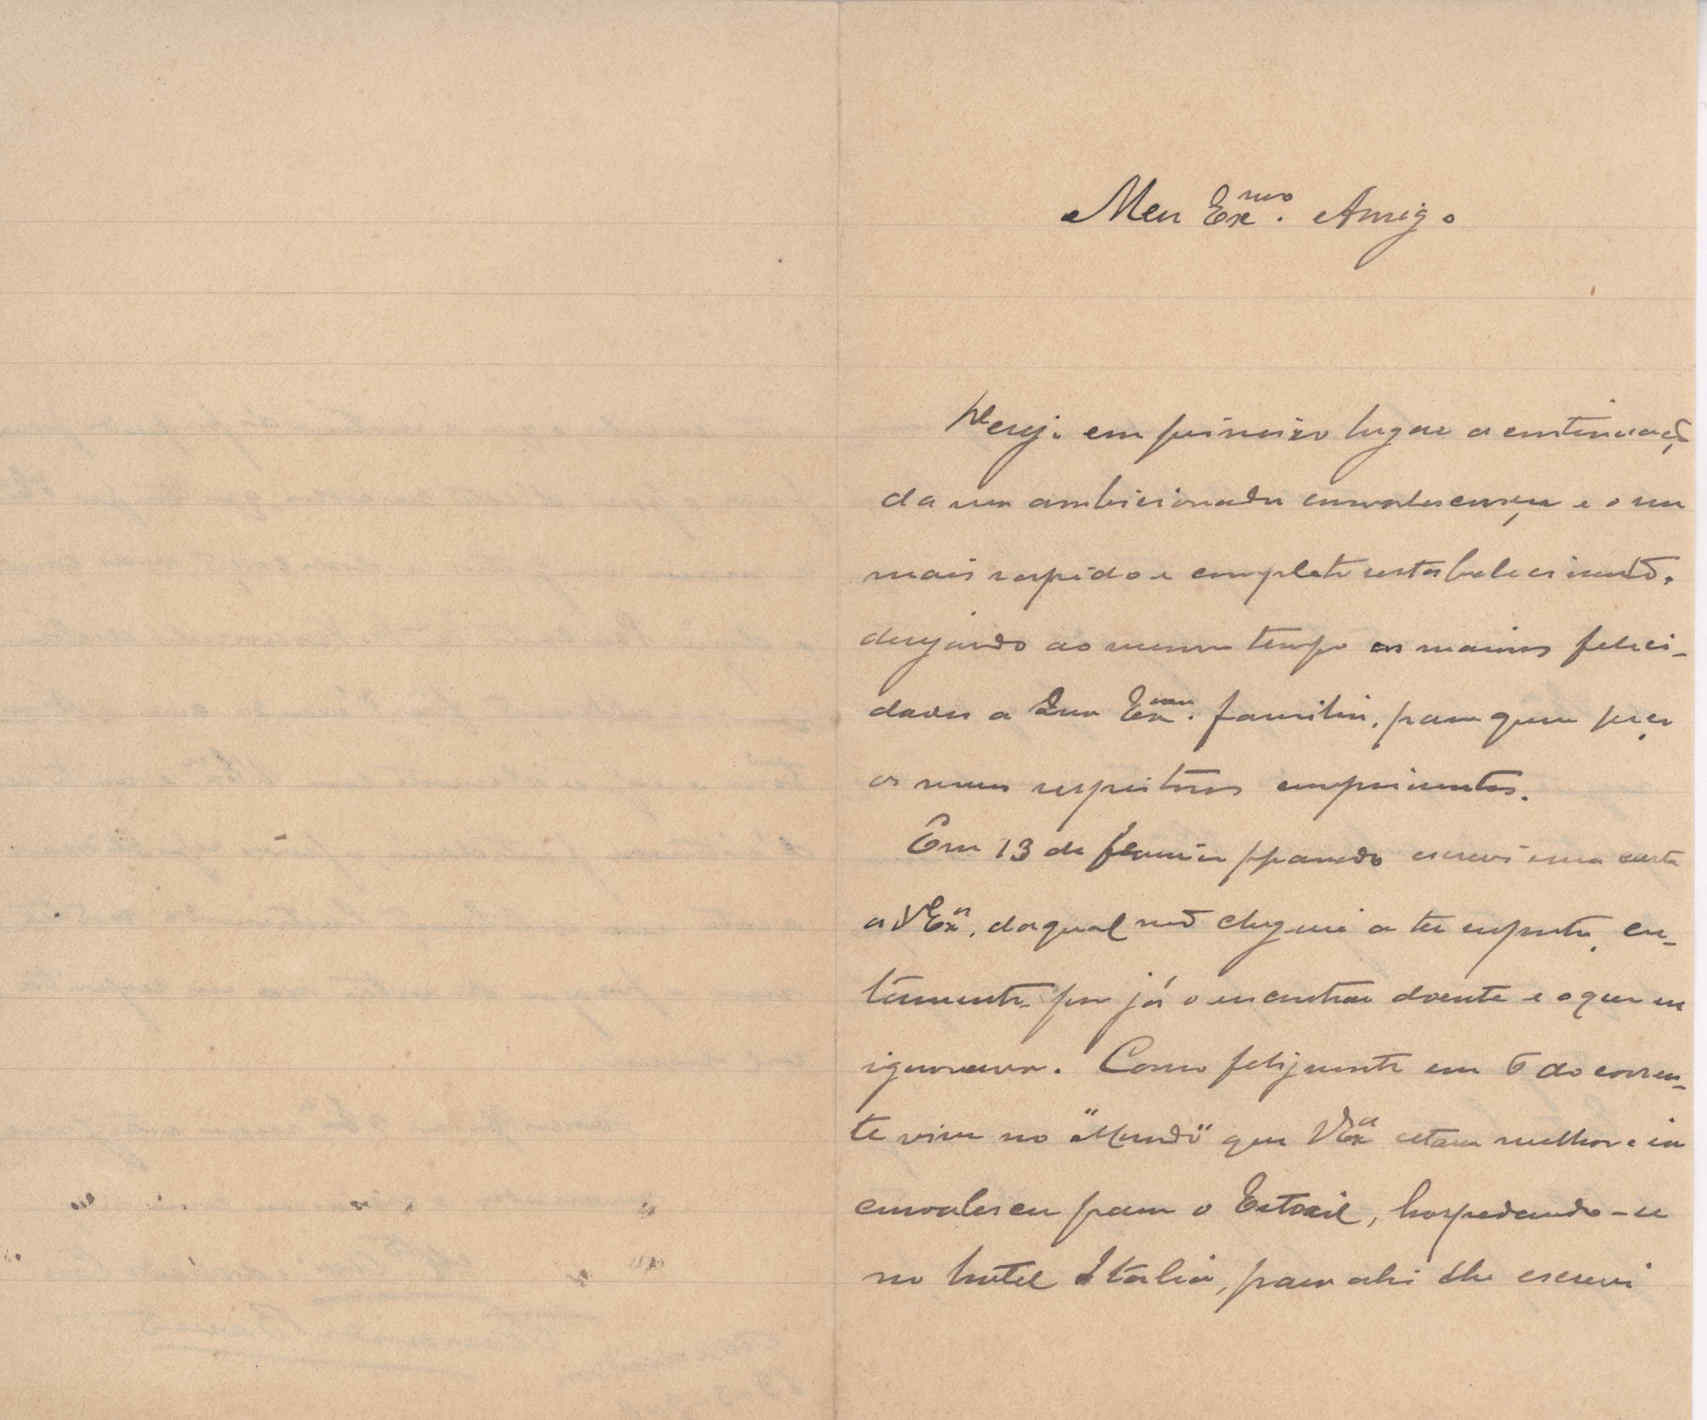 Meu Exmo. Amigo
Desejo em primeiro lugar a continuação
da sua ambicionada convalescença e o seu
mais rapido e completo restabelecimento,
desejando ao mesmo tempo as maiores felici-
dades a Sua Exma. familia, para quem peço
os meus respeitosos cumprimentos.
Em 13 de fevereiro ppassado escrevi uma carta
a V. Exa., da qual não cheguei a ter resposta, cer-
tamente por já o encontrar doente e o que eu
ignorava. Como felizmente em 6 do corren-
te vi no "Mundo" que V. Exa estava melhor e ia
convalescer para o Estoril, hospedando-se
no hotel Italia, para ahi lhe escrevi